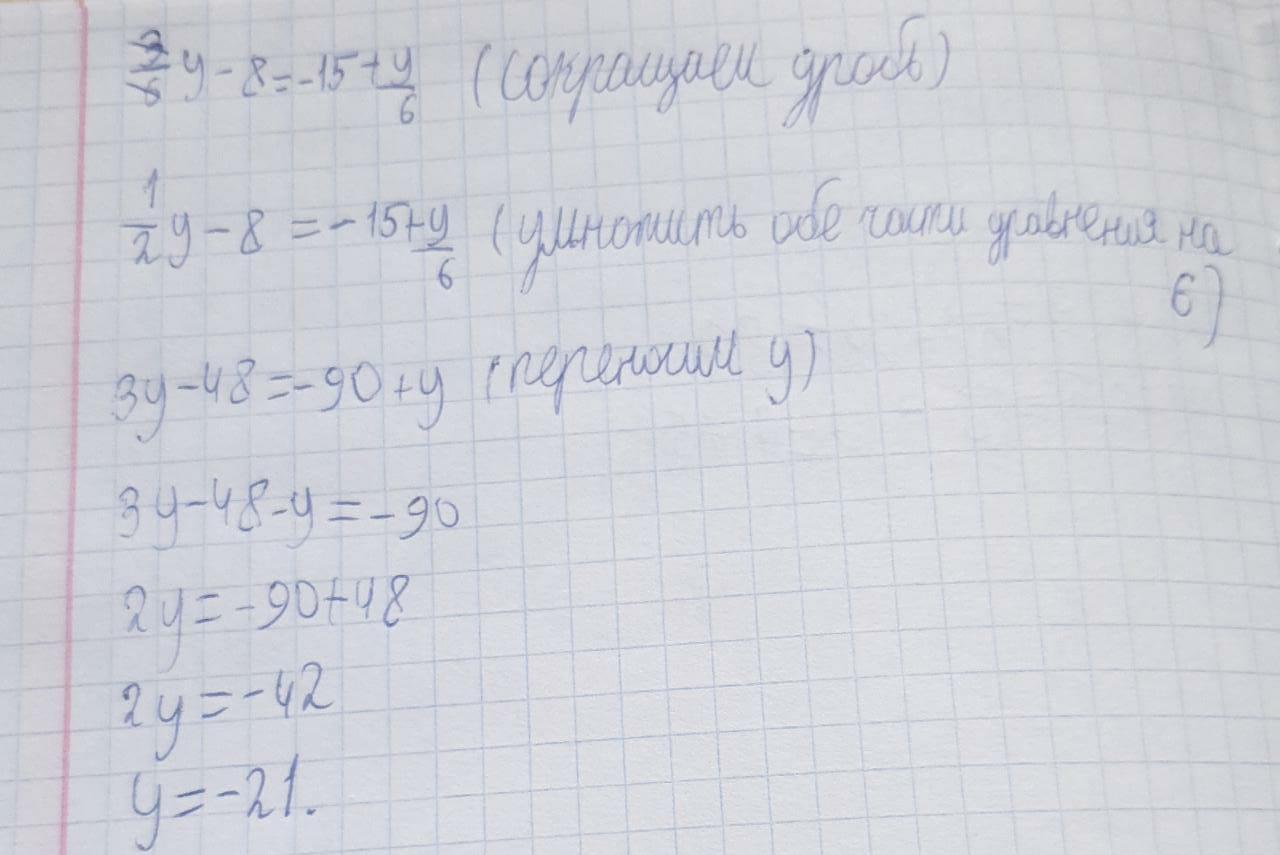 3/6 y - 8 = -15 + y/6 (сокращаем дробь)
1/2 y - 8 = -15 + y/6 (умножить обе части уравнения на
6)
3y - 48 = -90 + y (переносим y)
3y - 48 - y = -90
2y = -90 + 48
2y = -42
y = -21.